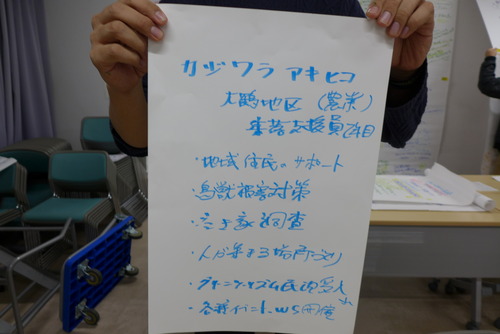 カヂワラ アキヒコ
大鶴地区 (農業)
集落支援員 2年目
・地域住民のサポート
・鳥獣被害対策
・空き家調査
・人が集まる場所づくり
・グリーンツーリズム民泊受入れ
・各種イベント、WS開催